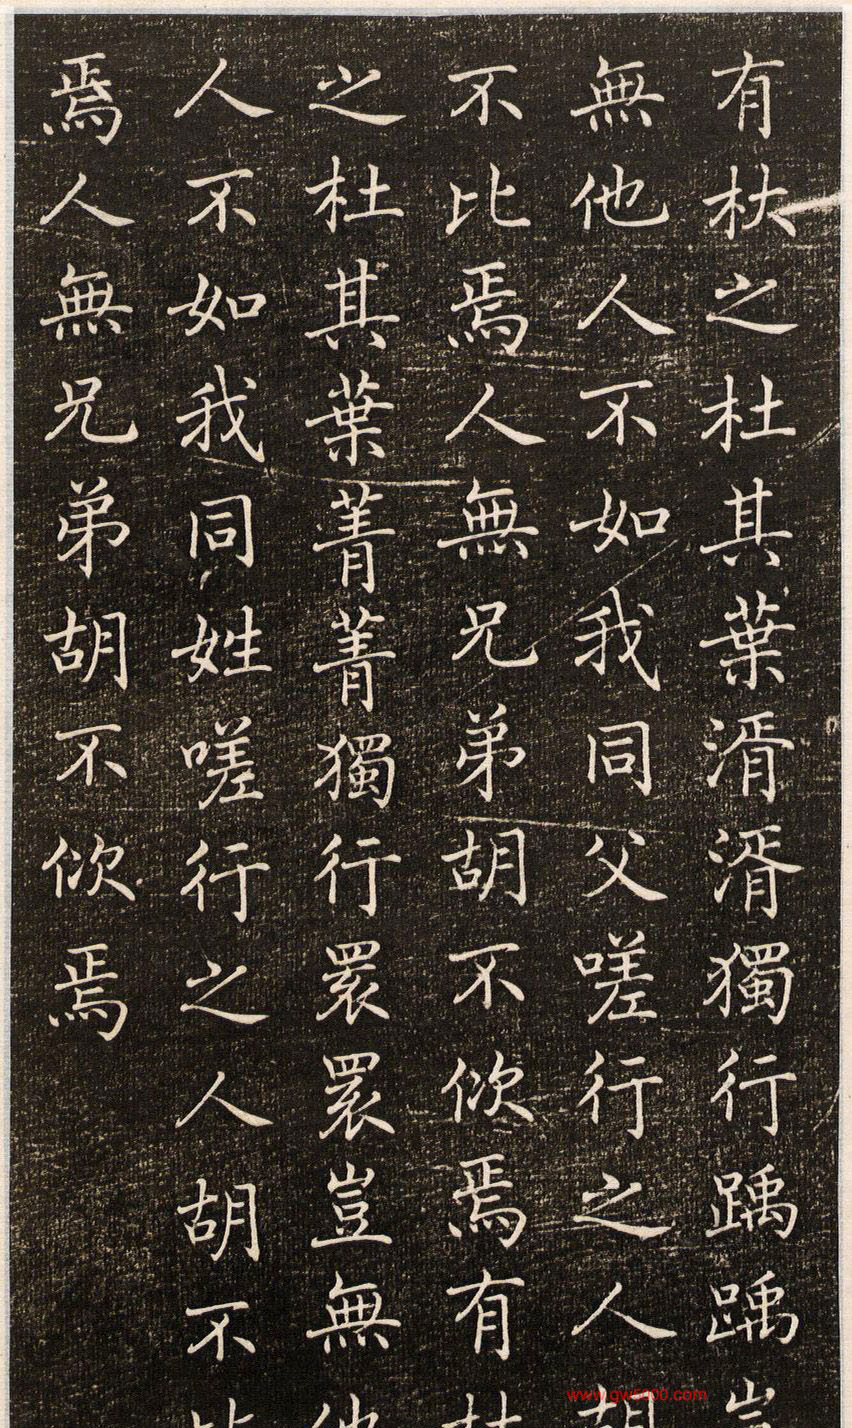 有杕之杜其葉湑湑獨行踽踽豈
無他人不如我同父嗟行之人胡
不比焉人無兄弟胡不佽焉有杕
之杜其葉菁菁獨行睘睘豈無他
人不如我同姓嗟行之人胡不比
焉人無兄弟胡不佽焉
www.gw5000.com